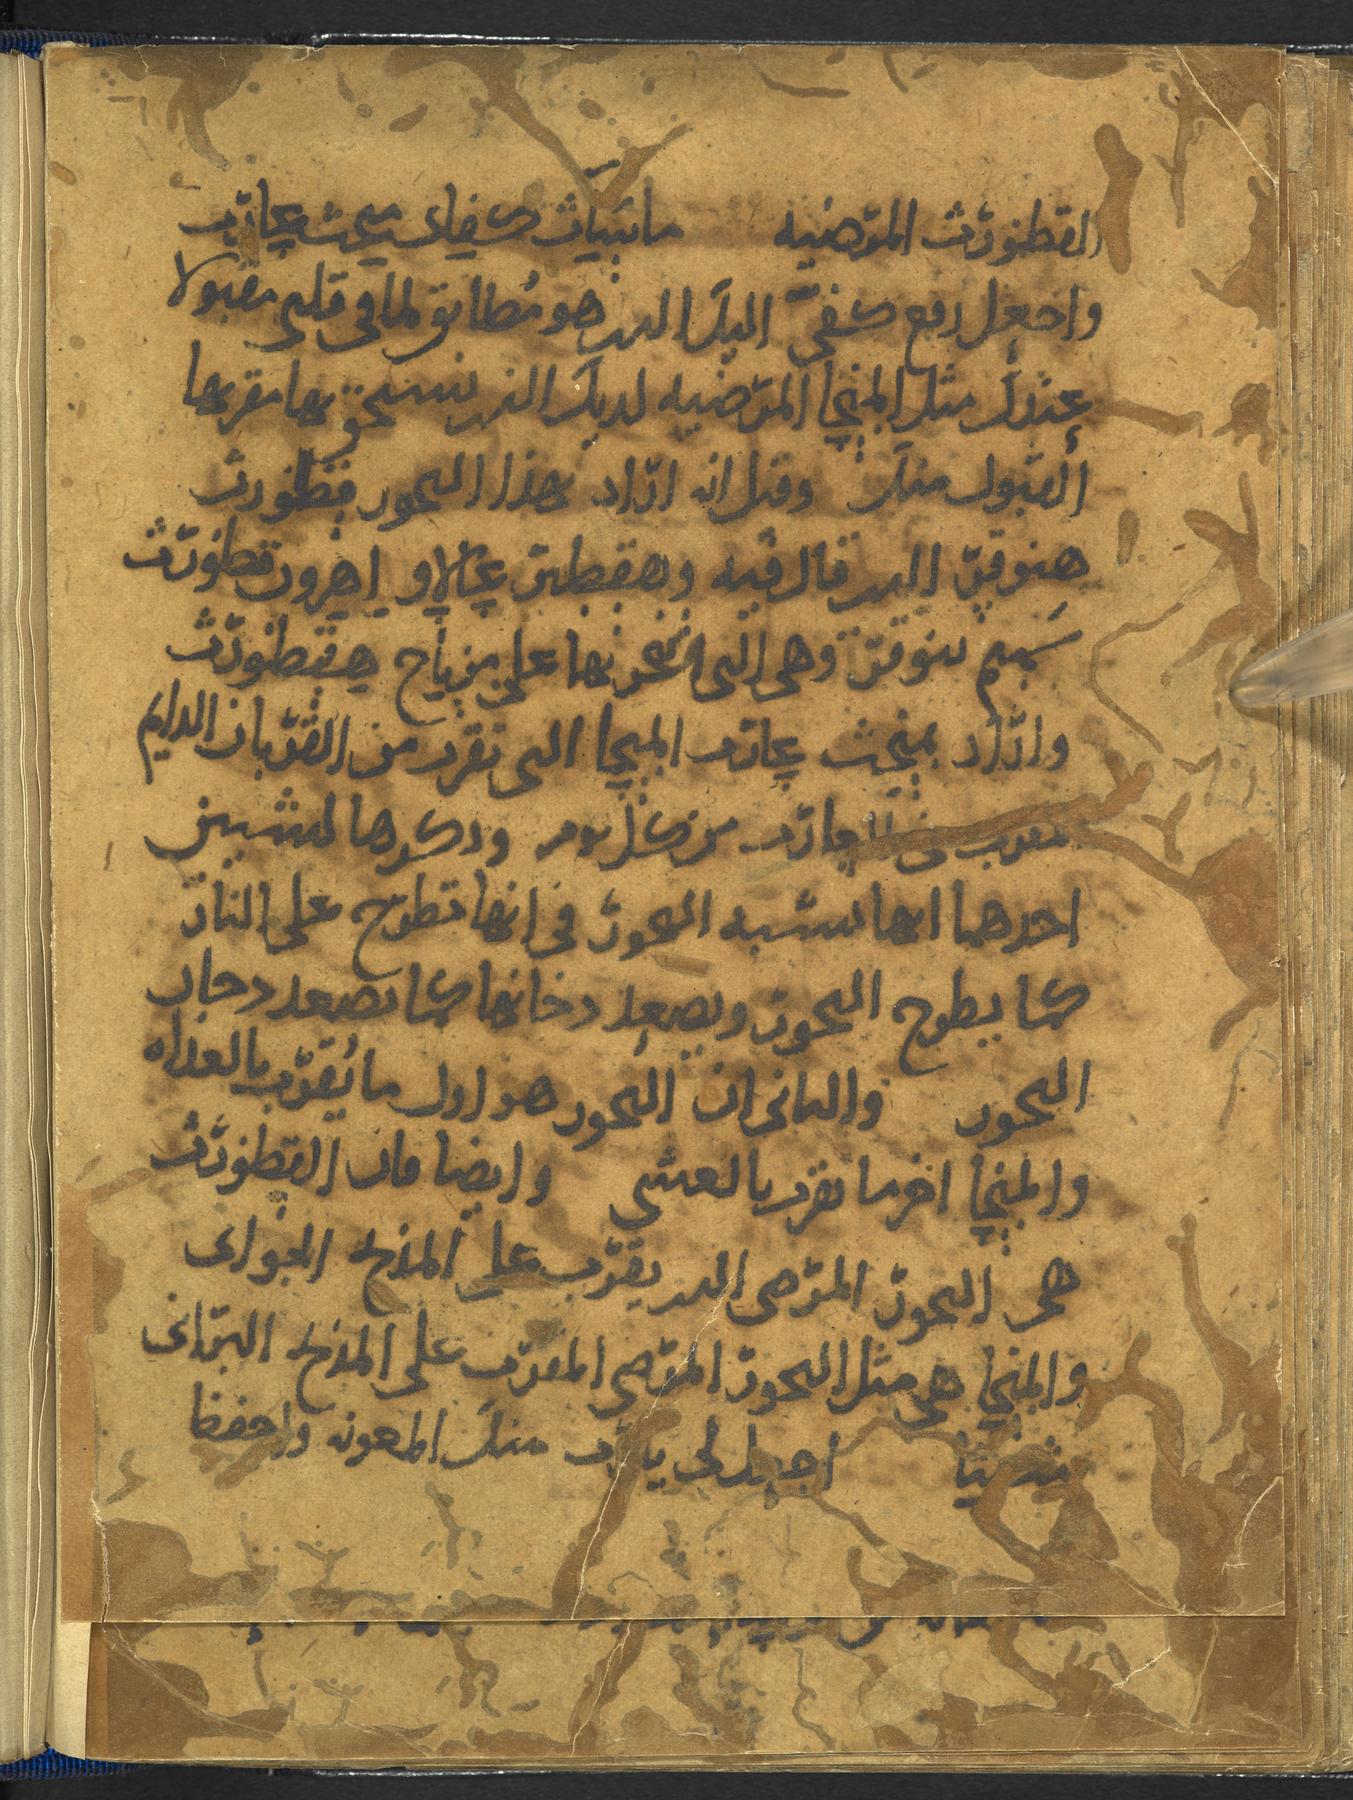 القطورث المرضيه ماسياث كفاي منحث عارب
واجعل رفع كفيّ اليك الدى هو مُطابق لما في قلبي مقبولا
عندك مثل المنحا المرضيه لديك الذى نستحق بها مقربها
القبول منك وقيل انه اراد بهذا البخور قطورث
هبوقر الدى قال فيه وهقطير عالاو اهرون قطورث
سميم ببوقر وهي التي انحر بها على مزباح هقطورث
واراد بمنحث عارب المنحا التي تقرب من القربان الدايم
من كل يوم ودكرها لشيين
احدهما انها تشبه البخور في انها تطرح على النار
كما يطرح البخور ويصعد دخانها كما يصعد دخان
البخور والثاني ان البخور هو اول ما يُقرّب بالغداه
والمنحا اخر ما يقرب بالعشي وايضا فان القطورث
هي البخور المرضي الدى يقرّب على المذبح الجواني
والمنحا هي مثل البخور المرضي المقرّب على المذبح البراني
اجعل لي يا رب منك المعونه واحفظ